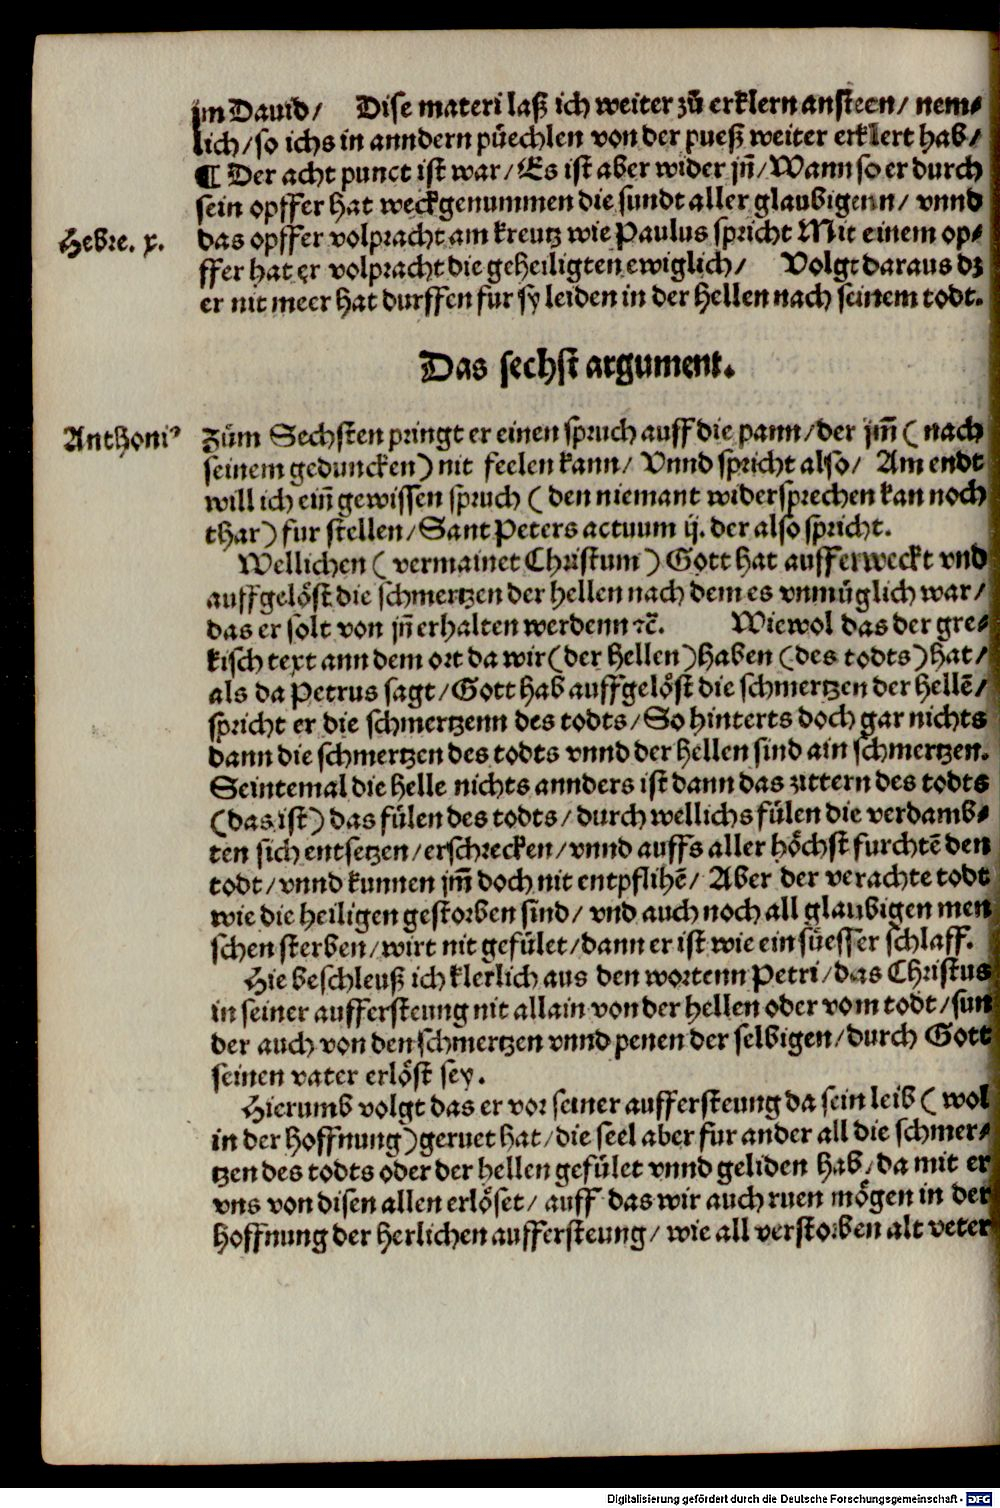 jm Dauid/ Dise materi laß ich weiter zů erklern ansteen/ nem⸗
lich/so ichs in anndern püechlen von der pueß weiter erklert hab/
¶ Der acht punct ist war/Es ist aber wider jn̄/Wann so er durch
sein opffer hat weckgenummen die sundt aller glaubigenn/ vnnd
Hebre. x. das opffer volpracht am kreutz wie Paulus spricht Mit einem op⸗
ffer hat er volpracht die geheiligten ewiglich/ Volgt daraus dz
er nit meer hat durffen fur sy leiden in der hellen nach seinem todt.
Das sechst argument.
Anthoniꝰ Zům Sechsten pringt er einen spruch auff die pann/der jm̄ ( nach
seinem geduncken) nit feelen kann/ Vnnd spricht also/ Am endt
will ich ein̄ gewissen spruch ( den niemant widersprechen kan noch
thar) fur stellen/Sant Peters actuum ij. der also spricht.
Wellichen ( vermainet Christum ) Gott hat aufferweckt vnd
auffgelöst die schmertzen der hellen nach dem es vnmüglich war/
das er solt von jn̄ erhalten werdenn ꝛc̄. Wiewol das der gre⸗
kisch text ann dem ort da wir(der hellen)haben (des todts)hat/
als da Petrus sagt/Gott hab auffgelöst die schmertzen der hellē/
spricht er die schmertzenn des todts/So hinterts doch gar nichts
dann die schmertzen des todts vnnd der hellen sind ain schmertzen.
Seintemal die helle nichts annders ist dann das zittern des todts
(das ist) das fülen des todts/durch wellichs fülen die verdamb⸗
ten sich entsetzen/erschrecken/vnnd auffs aller höchst furchtē den
todt/vnnd kunnen jm̄ doch nit entpflihē/ Aber der verachte todt
wie die heiligen gestorben sind/ vnd auch noch all glaubigen men
schen sterben/wirt nit gefület/dann er ist wie ein süesser schlaff.
Hie beschleuß ich klerlich aus den wortenn Petri/das Christus
in seiner auffersteung nit allain von der hellen oder vom todt/sun
der auch von den schmertzen vnnd penen der selbigen/durch Gott
seinen vater erlöst sey.
Hierumb volgt das er vor seiner auffersteung da sein leib ( wol
in der hoffnung)geruet hat/die seel aber fur ander all die schmer⸗
tzen des todts oder der hellen gefület vnnd geliden hab/da mit er
vns von disen allen erlöset/ auff das wir auch ruen mögen in der
hoffnung der herlichen auffersteung/ wie all verstorben alt veter
Digitalisierung gefördert durch die Deutsche Forschungsgemeinschaft - DFG